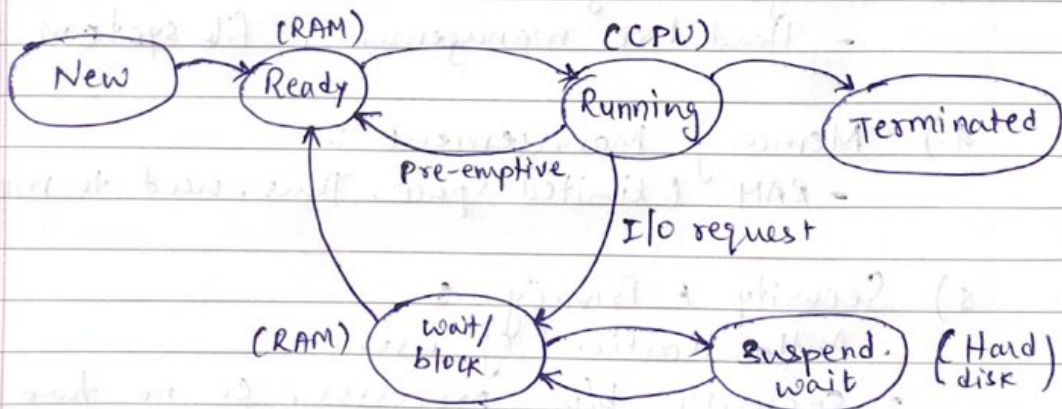 (RAM)
(CPU)
New
Ready
Running
Terminated
Pre-emptive
I/O request
(RAM)
wait/
block
Suspend.
wait
(Hard
disk)